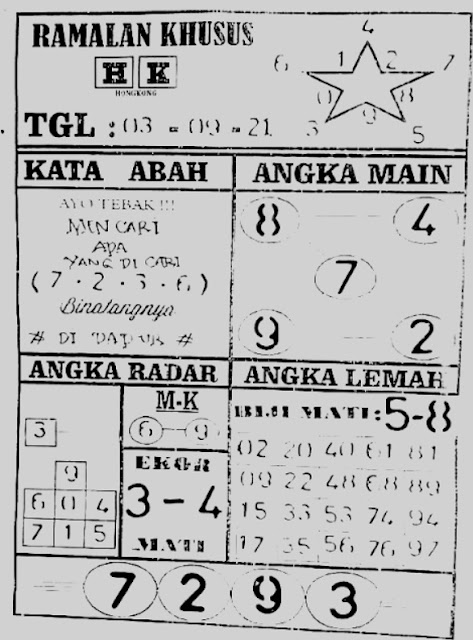 RAMALAN KHUSUS
H K
HONGKONG
TGL : 03 - 09 - 21
4
6 1 2 7
0 8
9
3 5
KATA ABAH
AYO TEBAK !!!
MENCARI
APA
YANG DI CARI
( 7 . 2 . 3 . 6 )
Binatangnya
# DI DAPUR #
ANGKA MAIN
8 4
7
9 2
ANGKA RADAR
3
9
6 0 4
7 1 5
M-K
6 - 9
EKOR
3 - 4
MATI
ANGKA LEMAH
BIJI MATI : 5-8
02 20 40 61 81
09 22 48 68 89
15 33 53 74 94
17 35 56 76 97
7 2 9 3